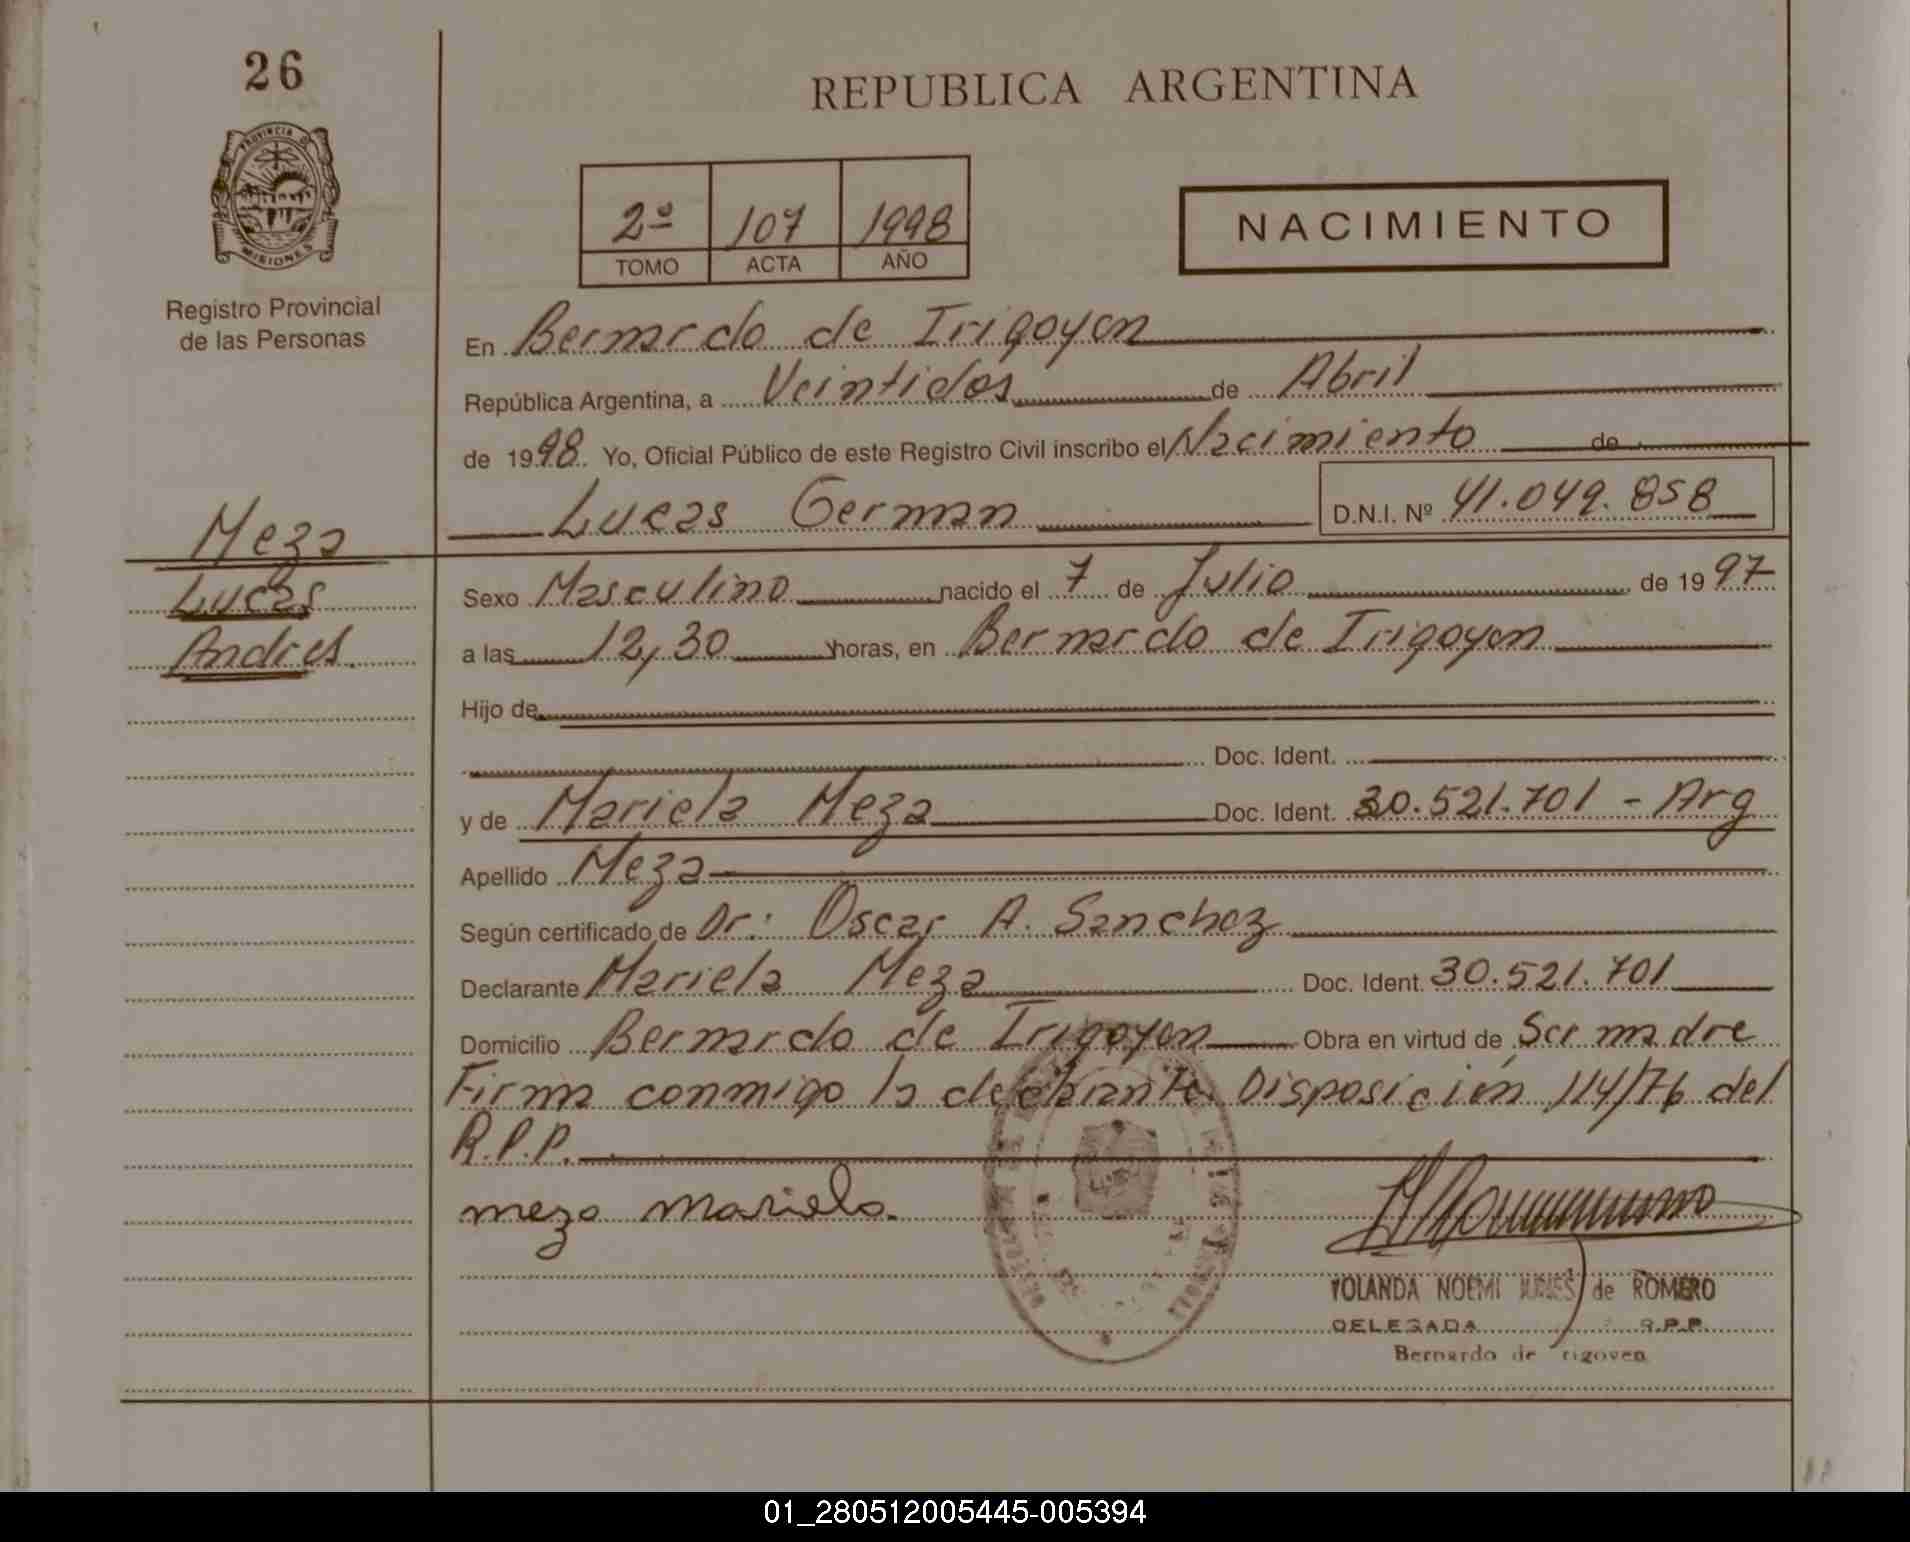 26
REPUBLICA ARGENTINA
PROVINCIA DE
MISIONES
Registro Provincial
de las Personas
2º 107 1998
TOMO ACTA AÑO
NACIMIENTO
En Bernardo de Irigoyen
República Argentina, a Veintidos de Abril
de 1998 Yo, Oficial Público de este Registro Civil inscribo el Nacimiento de
Lucas German D.N.I. Nº 41.049.858
Meza
Lucas
Andres
Sexo Masculino nacido el 7 de Julio de 1997
a las 12,30 horas, en Bernardo de Irigoyen
Hijo de
Doc. Ident.
y de Mariela Meza Doc. Ident. 30.521.701 - Arg
Apellido Meza
Según certificado de Dr: Oscar A. Sanchez
Declarante Mariela Meza Doc. Ident. 30.521.701
Domicilio Bernardo de Irigoyen Obra en virtud de Ser madre
Firma conmigo la declarante Disposición 114/76 del
R.P.P.
meza mariela.
YOLANDA NOEMI de ROMERO
DELEGADA R.P.P.
Bernardo de rigoyen
01_280512005445-005394